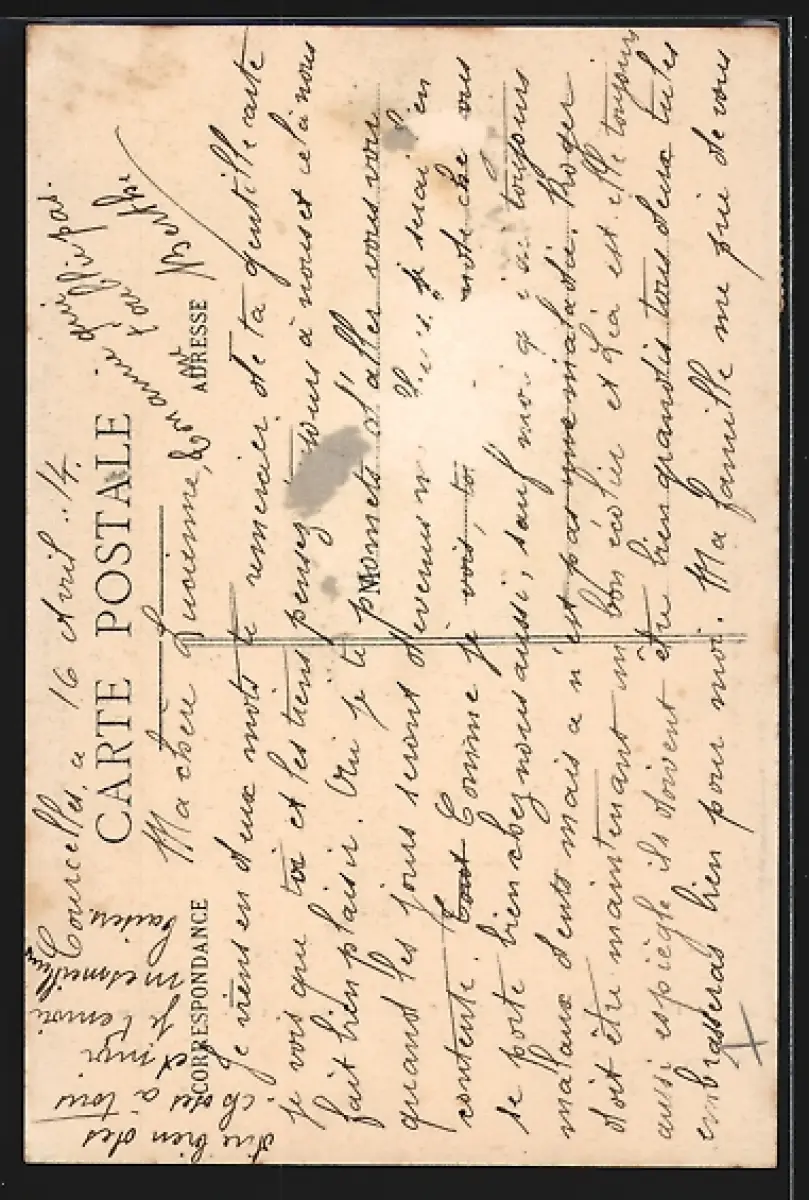 Courcelles, a 16 Avril .14.
CARTE POSTALE
CORRESPONDANCE
ADRESSE
Ma chère Lucienne,
Je viens en deux mots te remercier de ta gentille carte
je vois que toi et les tiens pensez toujours à nous et cela nous
fait bien plaisir. Oui je te promets d'aller vous voir
quand les jours seront devenus je serai en
contente. Comme je vois, toi notre che vous
se porte bien chez nous aussi, sauf moi q j'ai toujours
mal aux dents mais a n'est pas une maladie. Roger
doit être maintenant un bon écolier et Léa est elle toujours
aussi espiègle ils doivent être bien grandis tous deux tu les
embrasseras bien pour moi. Ma famille me prie de vous
dire bien des
choses à tous
et moi
je t'envoi
mes meilleurs
baisers
Ton amie qui
t'oublie pas.
Berthe